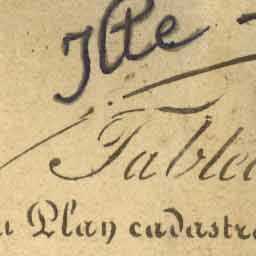 Jlle
Table
u Plan cadastra